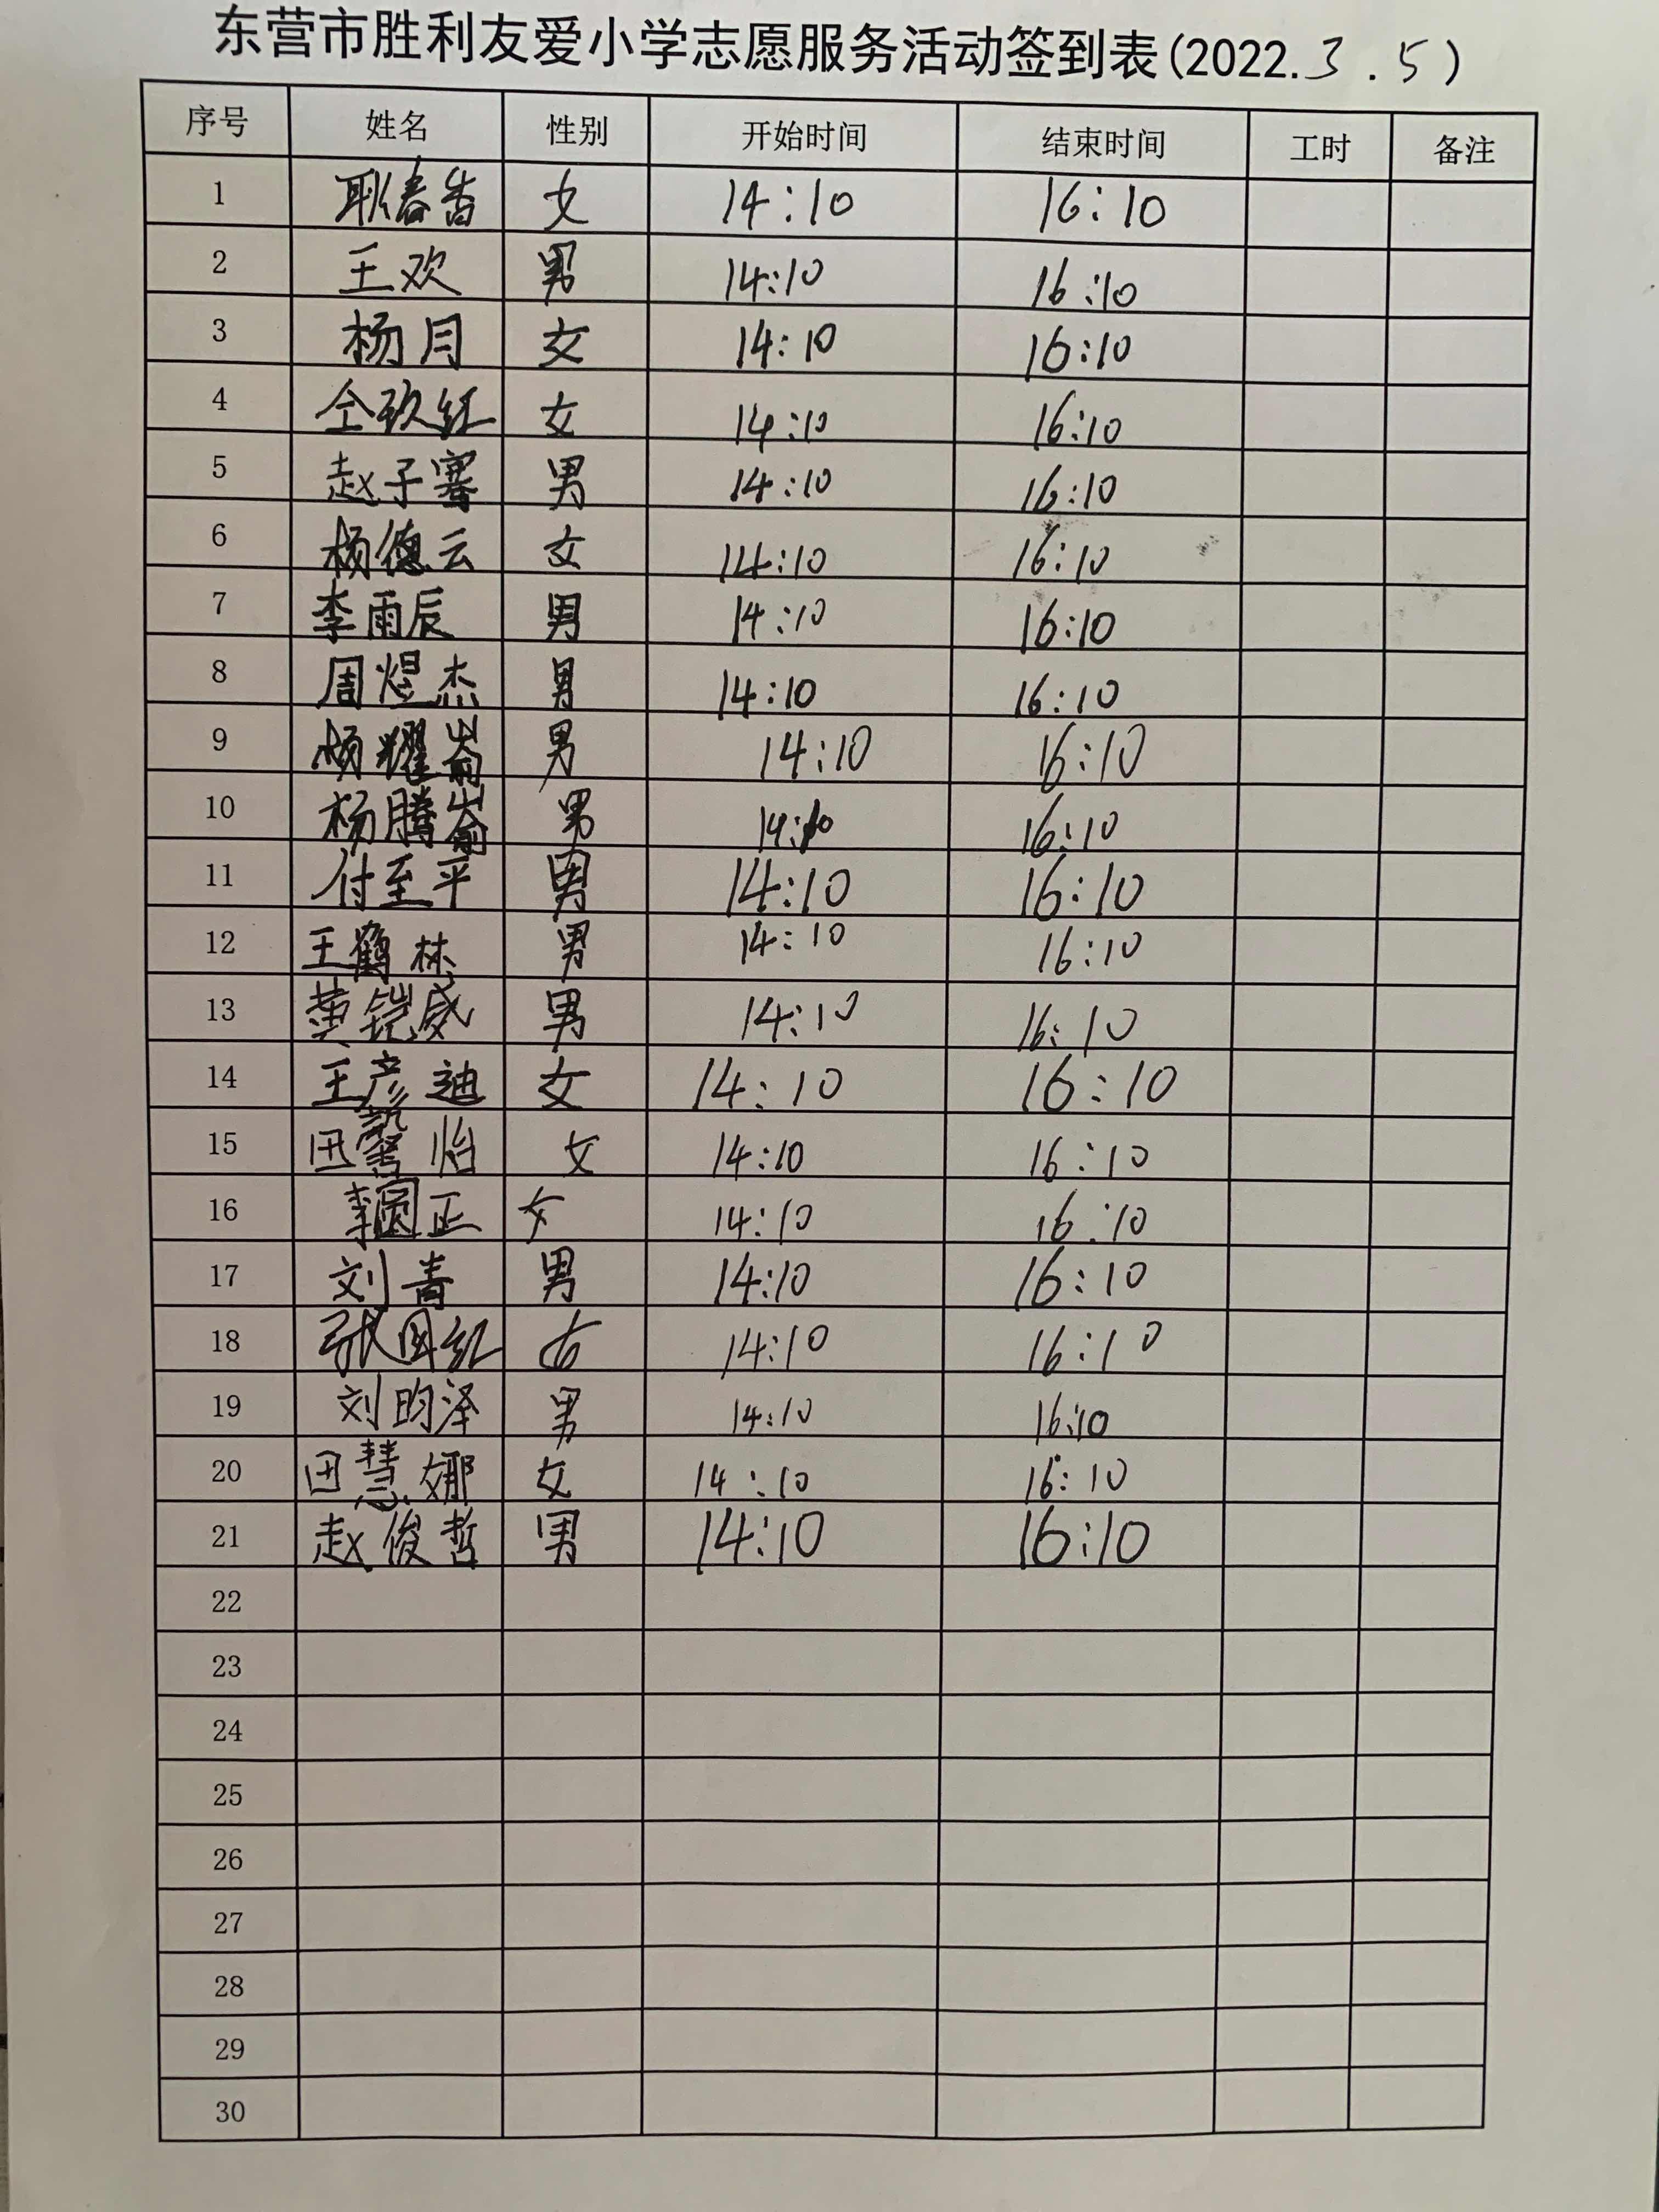 东营市胜利友爱小学志愿服务活动签到表(2022.3.5)
序号 姓名 性别 开始时间 结束时间 工时 备注
1 耿春香 女 14:10 16:10
2 王欢 男 14:10 16:10
3 杨月 女 14:10 16:10
4 仝玖红 女 14:10 16:10
5 赵子骞 男 14:10 16:10
6 杨德云 女 14:10 16:10
7 李雨辰 男 14:10 16:10
8 周煜杰 男 14:10 16:10
9 杨耀嵛 男 14:10 16:10
10 杨腾嵛 男 14:10 16:10
11 付至平 男 14:10 16:10
12 王鹤林 男 14:10 16:10
13 黄铠威 男 14:10 16:10
14 王彦迪 女 14:10 16:10
15 田馨怡 女 14:10 16:10
16 李圆正 女 14:10 16:10
17 刘青 男 14:10 16:10
18 张国红 女 14:10 16:10
19 刘昀泽 男 14:10 16:10
20 田慧娜 女 14:10 16:10
21 赵俊哲 男 14:10 16:10
22
23
24
25
26
27
28
29
30